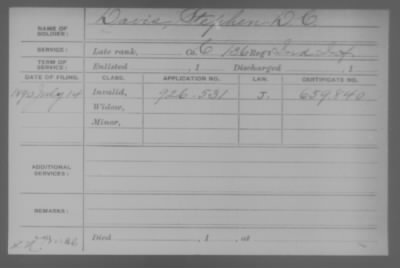 NAME OF SOLDIER: Davis, Stephen D. C.
SERVICE: Late rank, Co. C, 126 Reg't Ind. Inf.
TERM OF SERVICE: Enlisted , 1 Discharged , 1
DATE OF FILING. CLASS. APPLICATION NO. LAW. CERTIFICATE NO.
1890 July 14 Invalid, 926.531 J. 659.840
Widow,
Minor,
ADDITIONAL SERVICES:
REMARKS:
Died , 1 , at